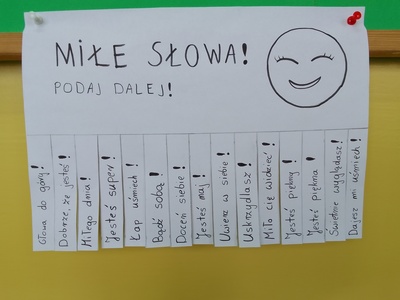 MIŁE SŁOWA!
PODAJ DALEJ!
Głowa do góry!
Dobrze, że jesteś!
Miłego dnia!
Jesteś super!
Łap uśmiech!
Bądź sobą!
Doceń siebie!
Jesteś mój!
Uwierz w siebie!
Uskrzydlasz!
Miło Cię widzieć!
Jesteś piękny!
Jesteś piękna!
Świetnie wyglądasz!
Dajesz mi uśmiech!